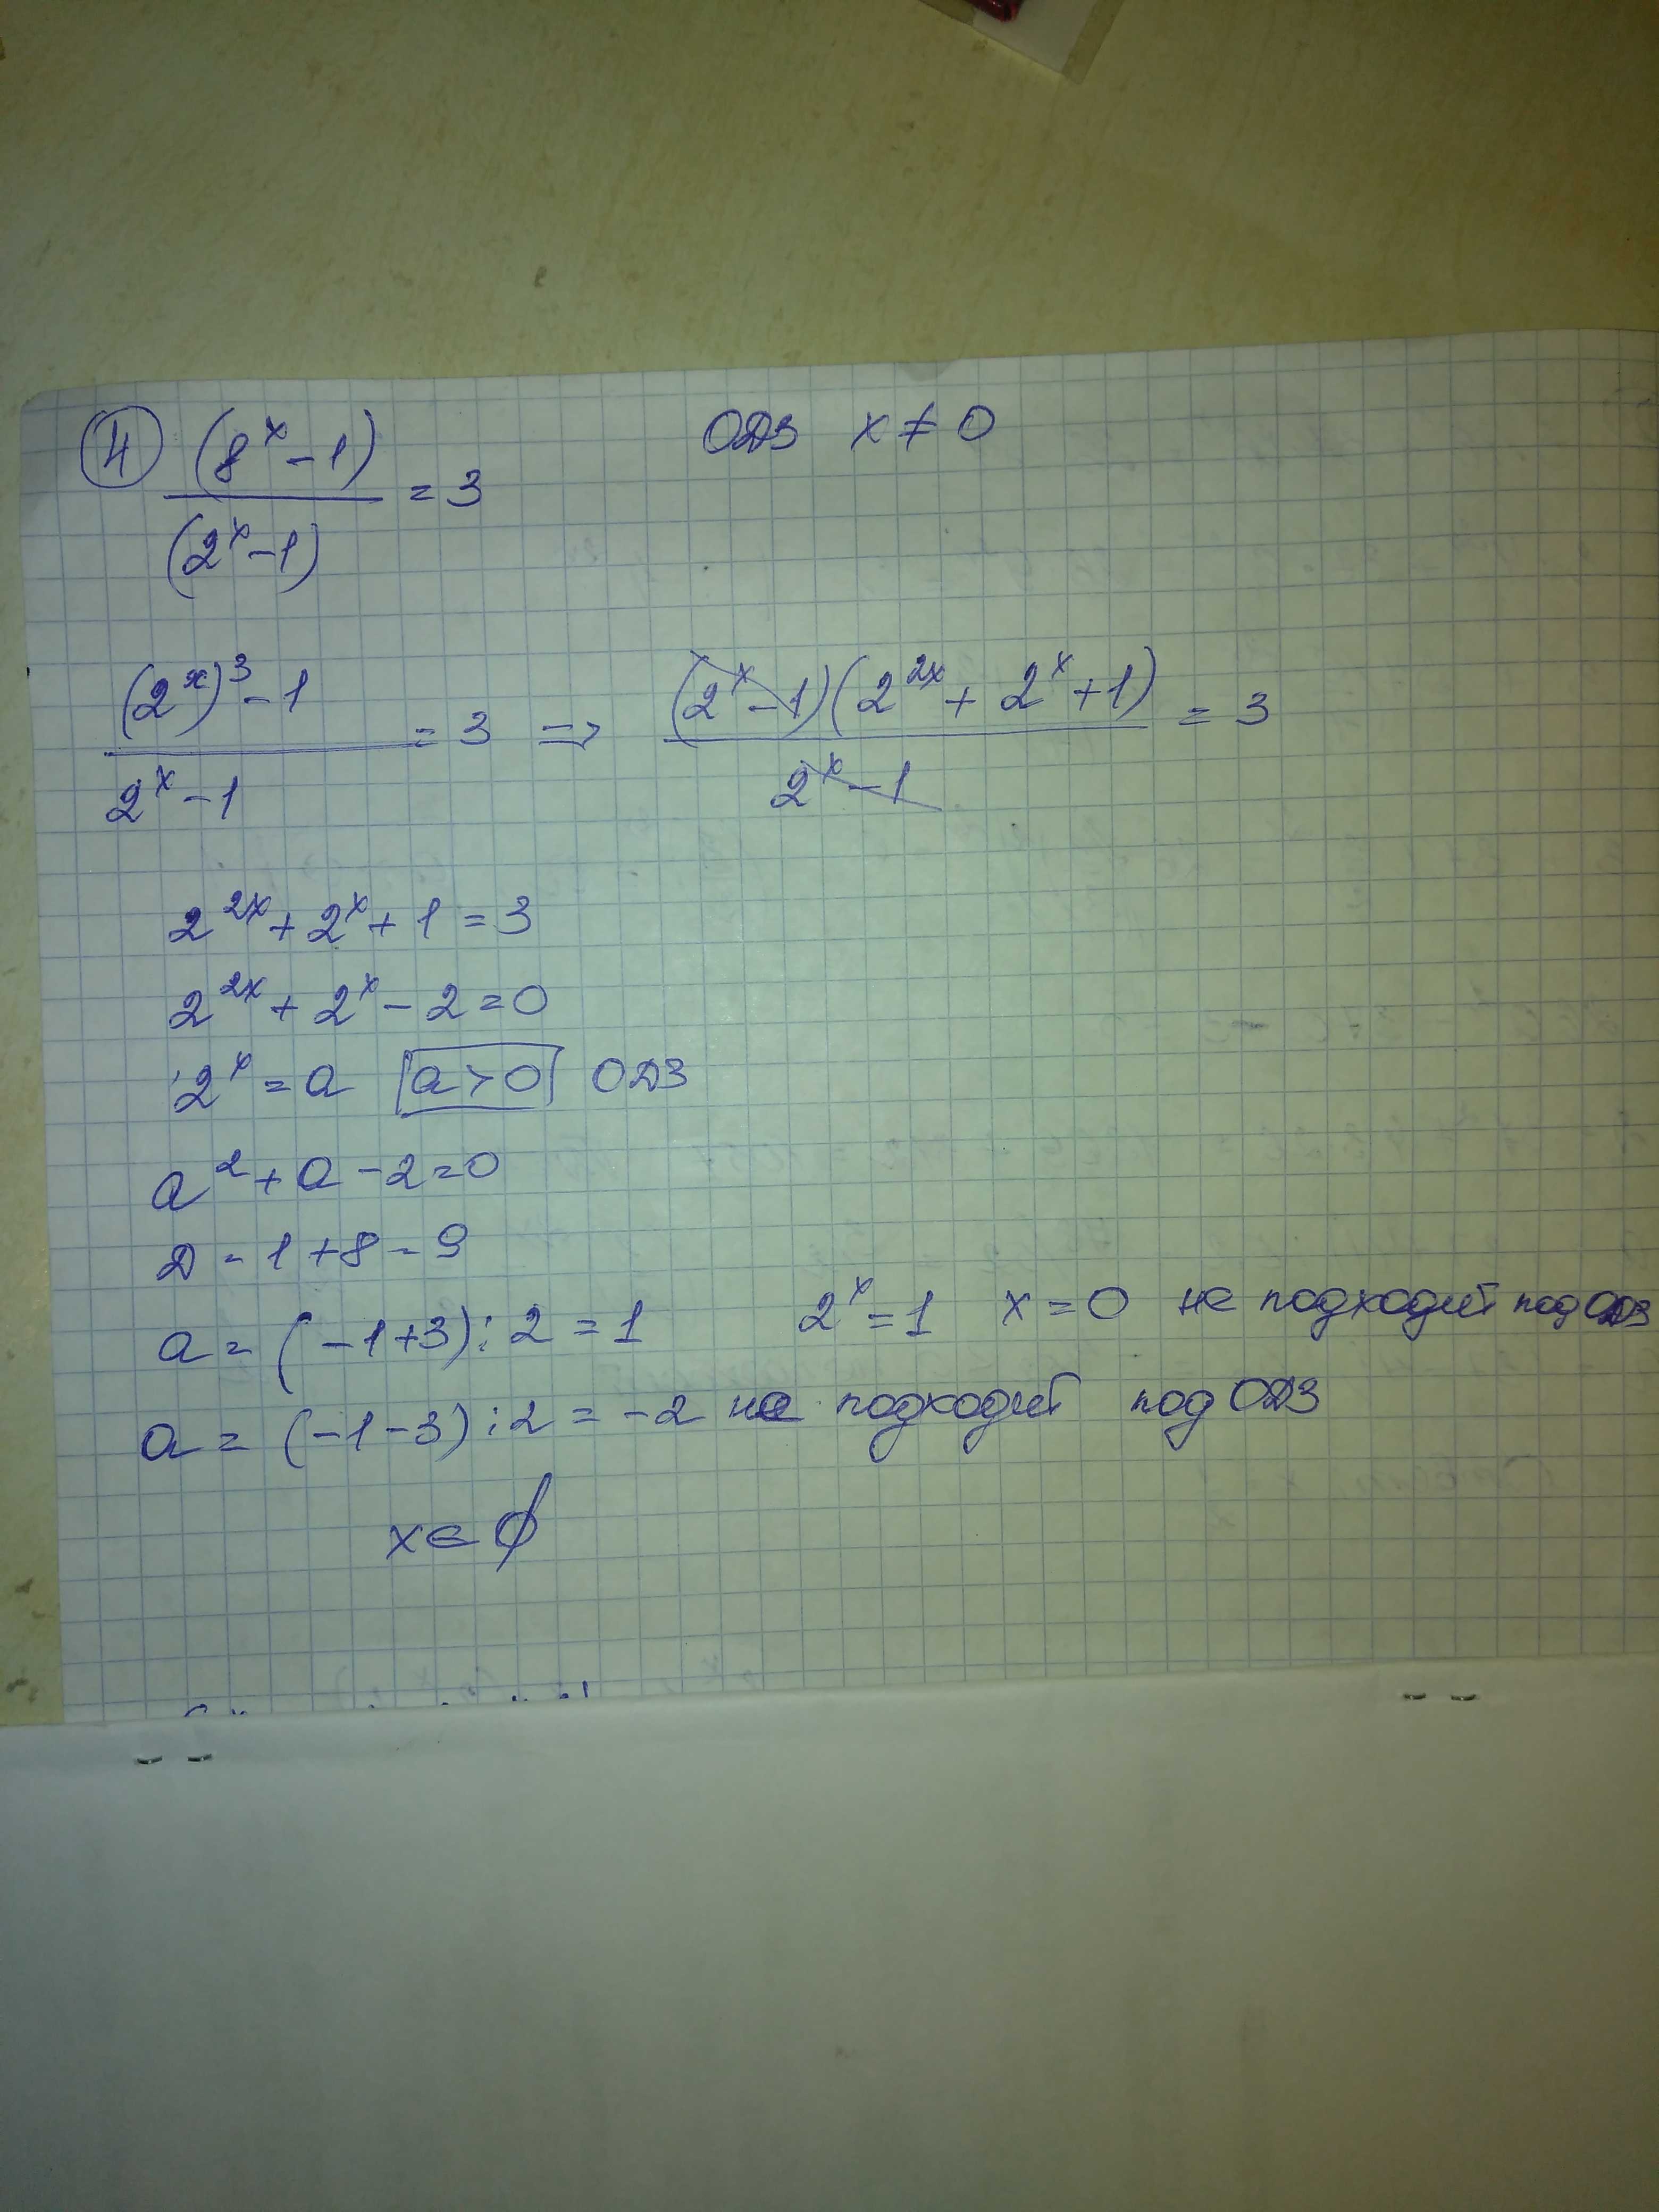 ④ (8^x - 1) / (2^x - 1) = 3 ОДЗ x ≠ 0
((2^x)^3 - 1) / (2^x - 1) = 3 => (2^x - 1)(2^2x + 2^x + 1) / (2^x - 1) = 3
2^2x + 2^x + 1 = 3
2^2x + 2^x - 2 = 0
2^x = a a > 0 ОДЗ
a^2 + a - 2 = 0
Д = 1 + 8 = 9
a = (-1+3) : 2 = 1 2^x = 1 x = 0 не подходит под ОДЗ
a = (-1-3) : 2 = -2 не подходит под ОДЗ
x ∈ ∅